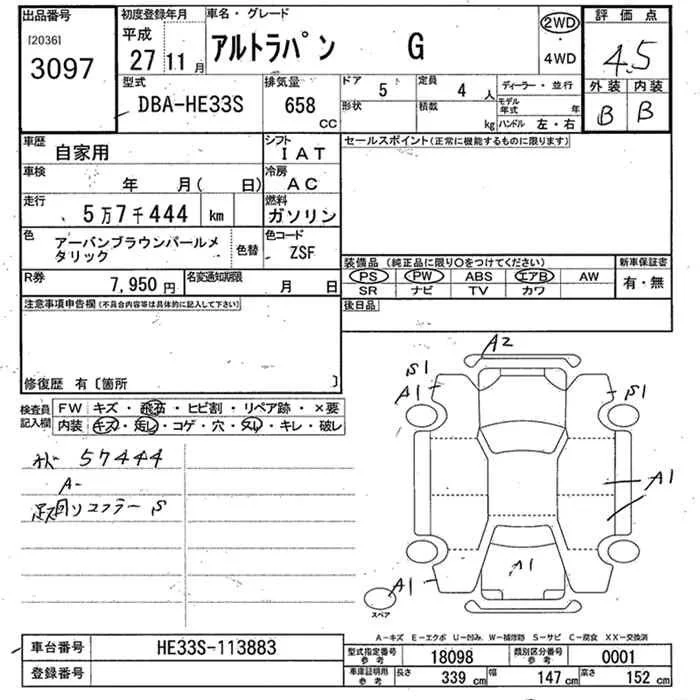 出品番号
[2036]
3097
初度登録年月
平成
27 11月
車名・グレード
アルトラパン G
2WD
・
4WD
評価点
4.5
外装 内装
B B
型式
DBA-HE33S
排気量
658
CC
ドア
5
定員
4 人
形状
積載
kg
ディーラー・並行
モデル年式 年
ハンドル 左・右
車歴
自家用
シフト
IAT
車検
年 月( 日)
冷房
AC
走行
5万7千444 km
燃料
ガソリン
色
アーバンブラウンパールメ
タリック
色替
色コード
ZSF
R券
7,950 円
名変通知期限
月 日
セールスポイント(正常に機能するものに限ります)
装備品 (純正品に限り○をつけてください)
PS PW ABS エアB AW
SR ナビ TV カワ
新車保証書
有・無
後日品
注意事項申告欄(不具合内容等は具体的に記入して下さい)
修復歴 有〔箇所 〕
検査員
記入欄
FW キズ・飛石・ヒビ割・リペア跡・×要
内装 キズ・汚レ・コゲ・穴・スレ・キレ・破レ
57444
A-
S
A2
S1
A1
S1
A1
A1
A1
スペア
A−キズ E−エクボ U−凹み W−補修跡 S−サビ C−腐食 XX−交換済
車台番号
HE33S-113883
登録番号
型式指定番号
参考
18098
類別区分番号
参考
0001
車庫証明用
参考
長さ 339 cm
幅 147 cm
高さ 152 cm